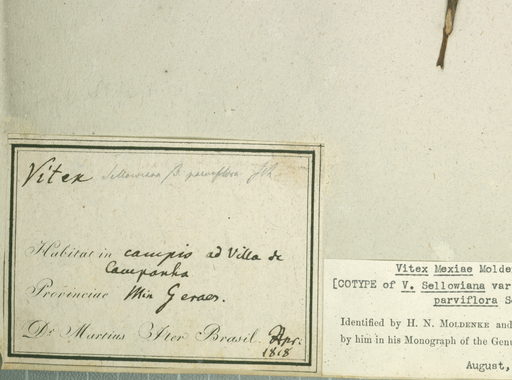 Vitex Sellowiana β parviflora Sch.
Habitat in campis ad Villa de
Campanha
Provinciae Min Geraes.
Dr Martius Iter Brasil. Apr.
1818
Vitex Mexiae Molde
[COTYPE of V. Sellowiana var
parviflora S
Identified by H. N. MOLDENKE and
by him in his Monograph of the Genu
August,